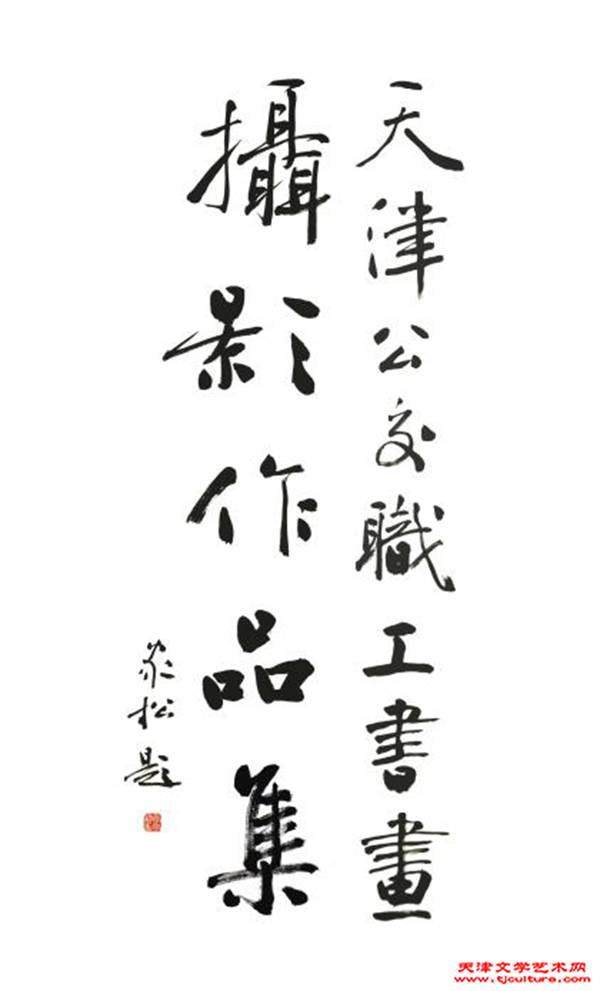 天津公交職工書畫
攝影作品集
家松題
天津文学艺术网
www.tjculture.com